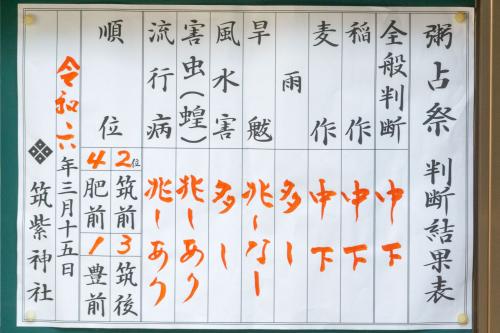 粥占祭 判断結果表
全般判断 中下
稲作 中下
麦作 中下
雨 多し
旱魃 兆しなし
風水害 多し
害虫(蝗) 兆しあり
流行病 兆しあり
順位 2位 筑前 3 筑後
4 肥前 1 豊前
令和六年三月十五日
筑紫神社